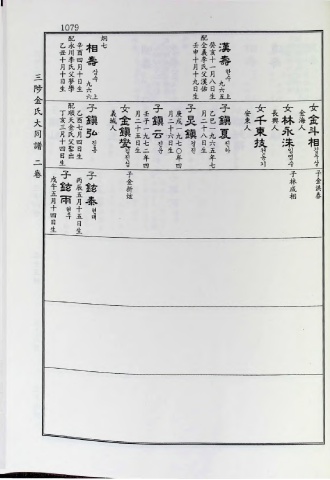 1079
三陟金氏大同譜 二卷
炯七
漢壽 한수 九六五上
癸亥十一月八日生
配金義李氏父漢佑
壬申十月十九日生
相壽 상수 九六六上
辛酉四月十日生
配永川李氏父夢學
乙丑十月十日生
女 金斗相 김두상
金海人
子金洪春
女 林永洙 임영수
長興人
子林成相
女 千東技 천동기
安東人
子 鎭夏 진하
乙巳一九六五年七月二十八日生
子 炅鎭 경진
庚戌一九七〇年四月二十六日生
子 鎭云 진운
壬子一九七二年四月二十五日生
女 金鎭瑩
義城人
子金新鉉
子 鎭弘 진홍
乙酉七月四日生
丁亥三月十四日生
子 鉉泰 현태
丙辰五月十五日生
子 鉉雨 현우
戊午五月十四日生